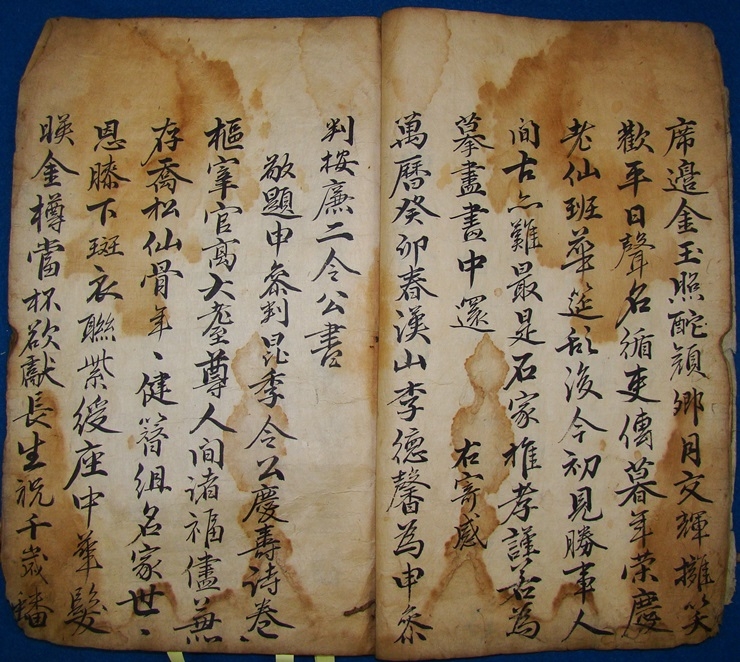 席邊金玉照酡顔鄉月交輝擁笑
歡平日聲名循吏傳暮年榮慶
老仙班華筵亂後今初見勝事人
間古亦難最是石家惟孝謹若為
摹畫畫中還
右寄感
萬曆癸卯春漢山李德馨為申叅
判按廉二令公書
敬題申叅判昆季令公慶壽詩卷
樞宰官高大耋尊人間諸福儘兼
存喬松仙骨年、健簪組名家世、
恩膝下斑衣聯紫綬座中華髮
暎金樽當杯欲獻長生祝千歲蟠